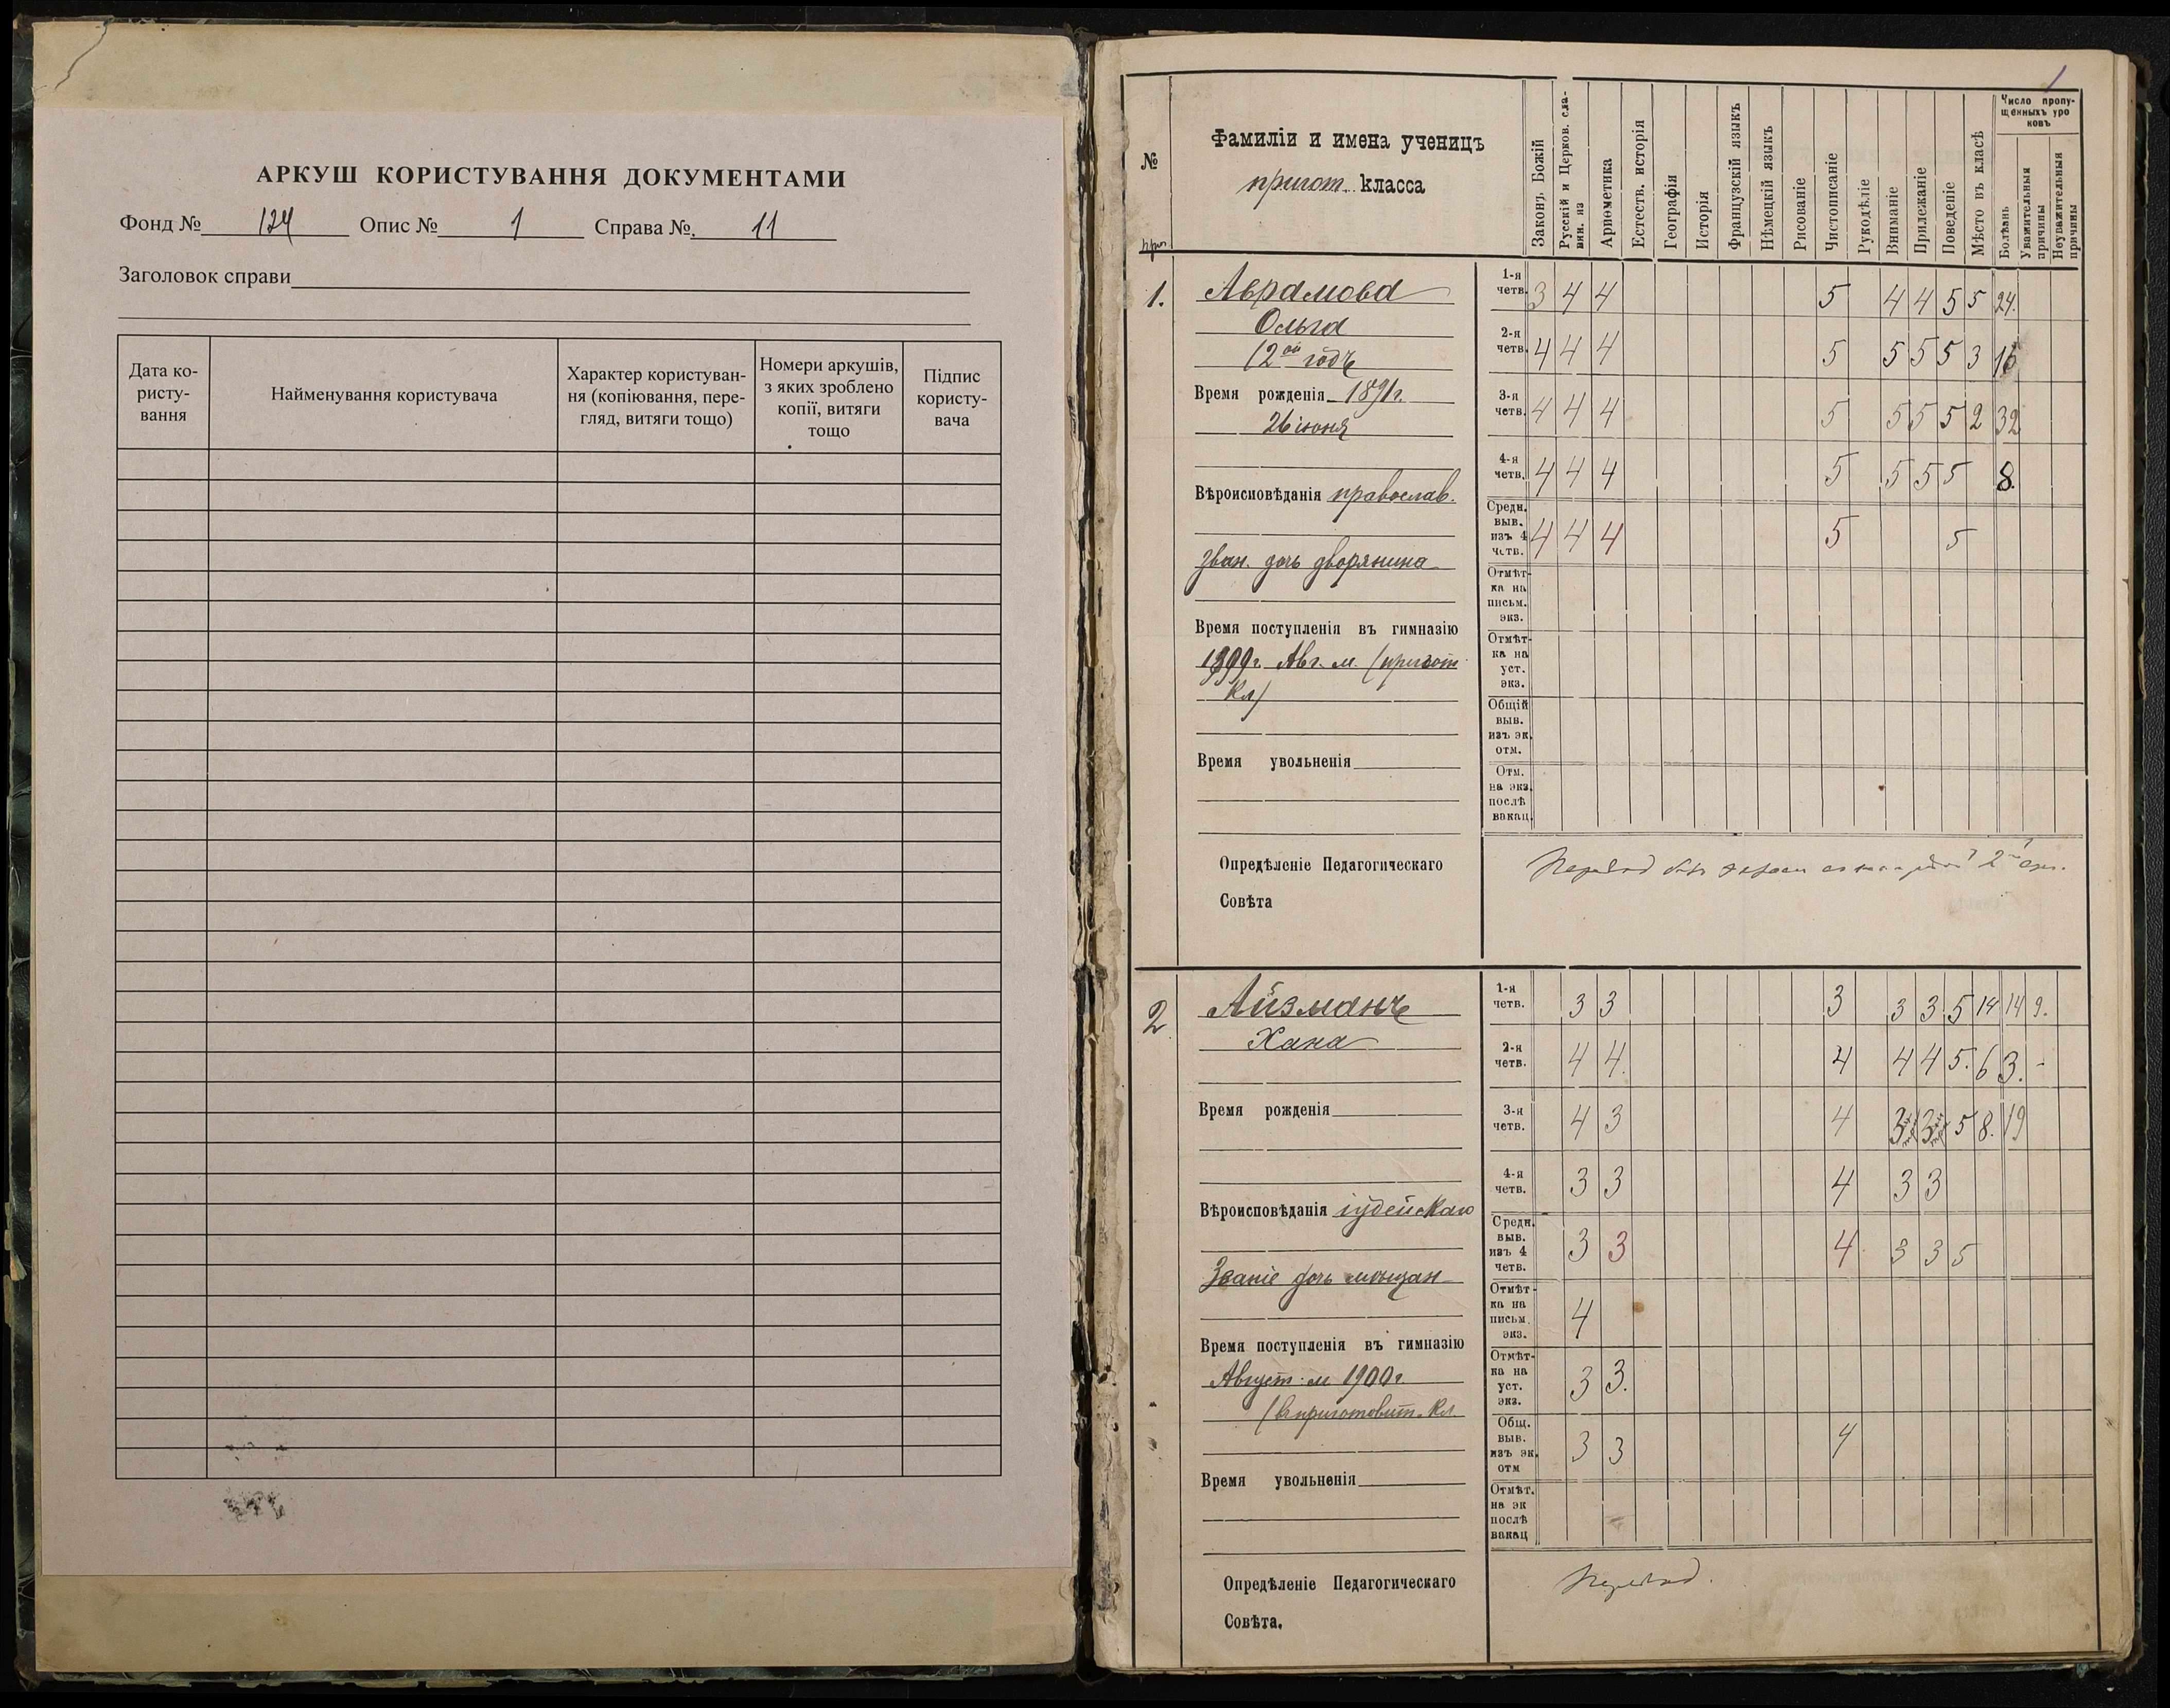 АРКУШ КОРИСТУВАННЯ ДОКУМЕНТАМИ
Фонд № 134 Опис № 1 Справа № 11
Заголовок справи
Дата ко-
ристу-
вання
Найменування користувача
Характер користуван-
ня (копіювання, пере-
гляд, витяги тощо)
Номери аркушів,
з яких зроблено
копії, витяги
тощо
Підпис
користу-
вача
1
№
Фамиліи и имена ученицъ
пригот. класса
Законъ Божій
Русскій и Церков. сла-
вян. яз
Ариѳметика
Естеств. исторія
Географія
Исторія
Французскій языкъ
Нѣмецкій языкъ
Рисованіе
Чистописаніе
Рукодѣліе
Вниманіе
Прилежаніе
Поведеніе
Мѣсто въ класѣ
Число пропу-
щенныхъ уро
ковъ
Болѣзнь
Уважительныя
причины
Неуважительныя
причины
1.
Аврамова
Ольга
(2ой годъ
Время рожденія 1891г.
26 іюня
Вѣроисповѣданія православ.
Зван. дочь дворянина
Время поступленія въ гимназію
1899г. Авг. м. (пригот
кл)
Время увольненія
Опредѣленіе Педагогическаго
Совѣта
1-я
четв. 3 4 4 5 4 4 5 5 24.
2-я
четв. 4 4 4 5 5 5 5 3 16
3-я
четв. 4 4 4 5 5 5 5 2 32
4-я
четв. 4 4 4 5 5 5 5 8.
Средн.
выв.
изъ 4
четв. 4 4 4 5 5
Отмѣт-
ка на
письм.
экз.
Отмѣт-
ка на
уст.
экз.
Общій
выв.
изъ эк.
отм.
Отм.
на экз.
послѣ
вакац.
2
Айзманъ
Хана
Время рожденія
Вѣроисповѣданія іудейскаго
Званіе дочь мѣщан
Время поступленія въ гимназію
Август. м 1900г.
(в приготовит. кл
Время увольненія
Опредѣленіе Педагогическаго
Совѣта.
1-я
четв. 3 3 3 3 3 5 14 14 9.
2-я
четв. 4 4. 4 4 4 5. 6 3. -
3-я
четв. 4 3 4 3 3 5 8. 19
4-я
четв. 3 3 4 3 3
Средн.
выв.
изъ 4
четв. 3 3 4 3 3 5
Отмѣт-
ка на
письм.
экз. 4
Отмѣт-
ка на
уст.
экз. 3 3.
Общ.
выв.
изъ эк.
отм 3 3 4
Отмѣт.
на эк
послѣ
вакац